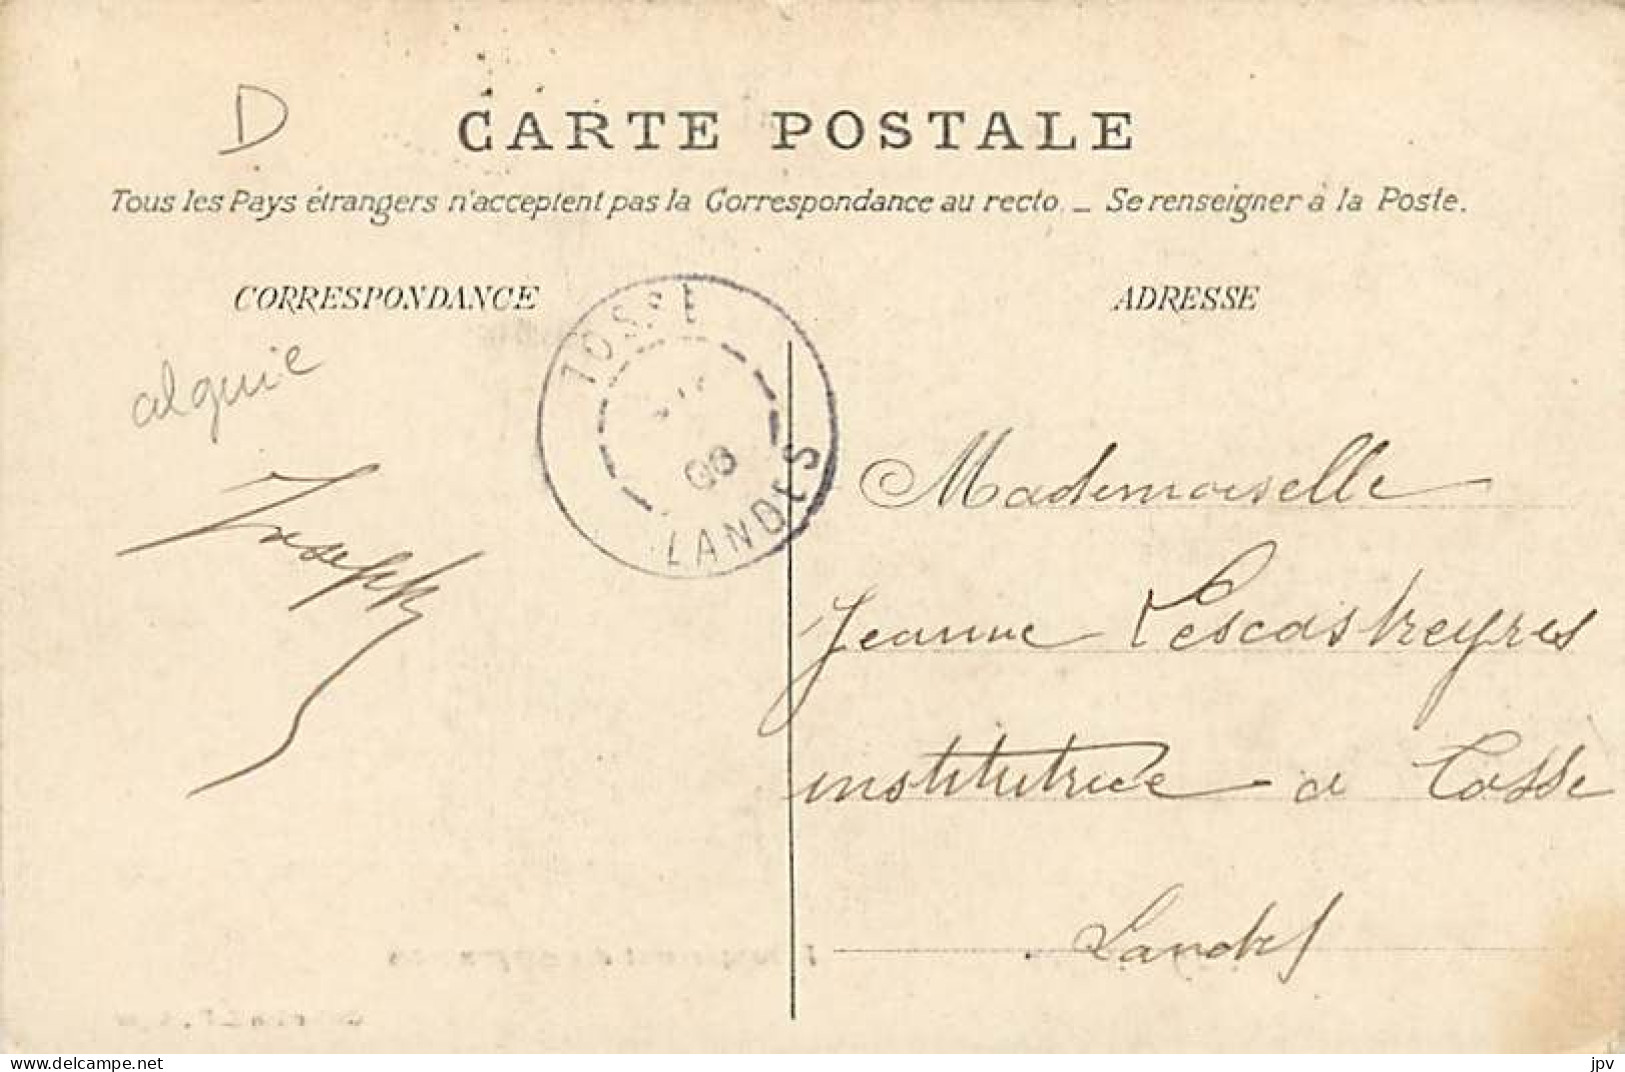 D
CARTE POSTALE
Tous les Pays étrangers n'acceptent pas la Correspondance au recto. _ Se renseigner à la Poste.
CORRESPONDANCE
ADRESSE
TOSSE
06
LANDES
alguie
Joseph
Mademoiselle
Jeanne Lescastreyres
institutrice a Tosse
Landes
jpv